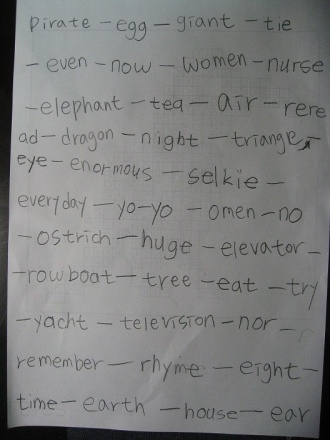 Pirate - egg - giant - tie
- even - now - women - nurse
- elephant - tea - air - rere
ad - dragon - night - triange -
eye - enormous - selkie -
everyday - yo-yo - omen - no
- ostrich - huge - elevator -
- rowboat - tree - eat - try
- yacht - television - nor -
remember - rhyme - eight -
time - earth - house - ear